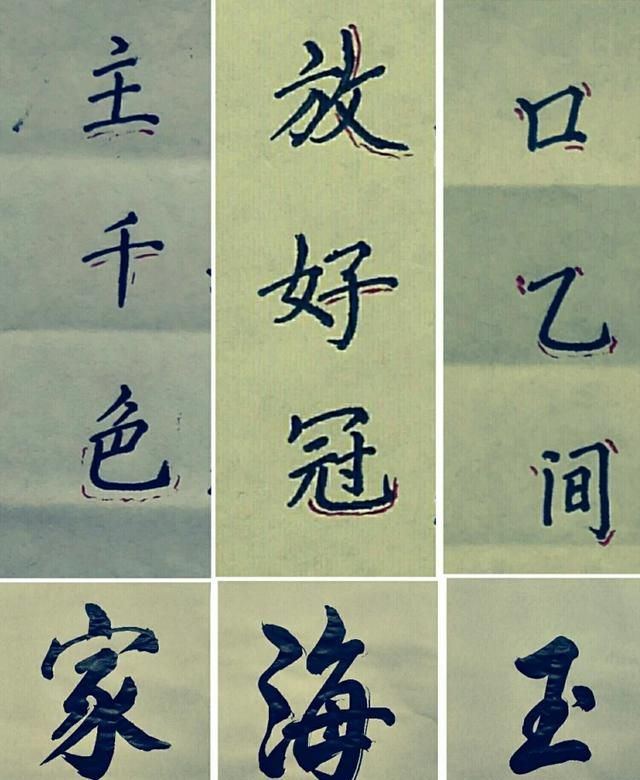 主
千
色
放
好
冠
口
乙
间
家
海
玉